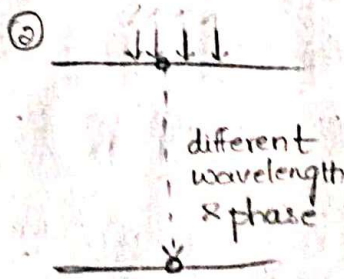 ②
different
wavelength
& phase